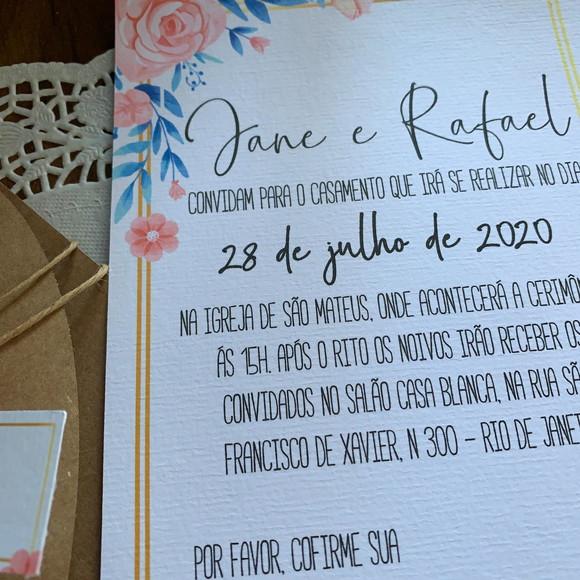 Jane e Rafael
CONVIDAM PARA O CASAMENTO QUE IRÁ SE REALIZAR NO DIA
28 de julho de 2020
NA IGREJA DE SÃO MATEUS, ONDE ACONTECERÁ A CERIMÔN
ÁS 15H. APÓS O RITO OS NOIVOS IRÃO RECEBER OS
CONVIDADOS NO SALÃO CASA BLANCA, NA RUA SÃ
FRANCISCO DE XAVIER, N 300 - RIO DE JANEI
POR FAVOR, COFIRME SUA